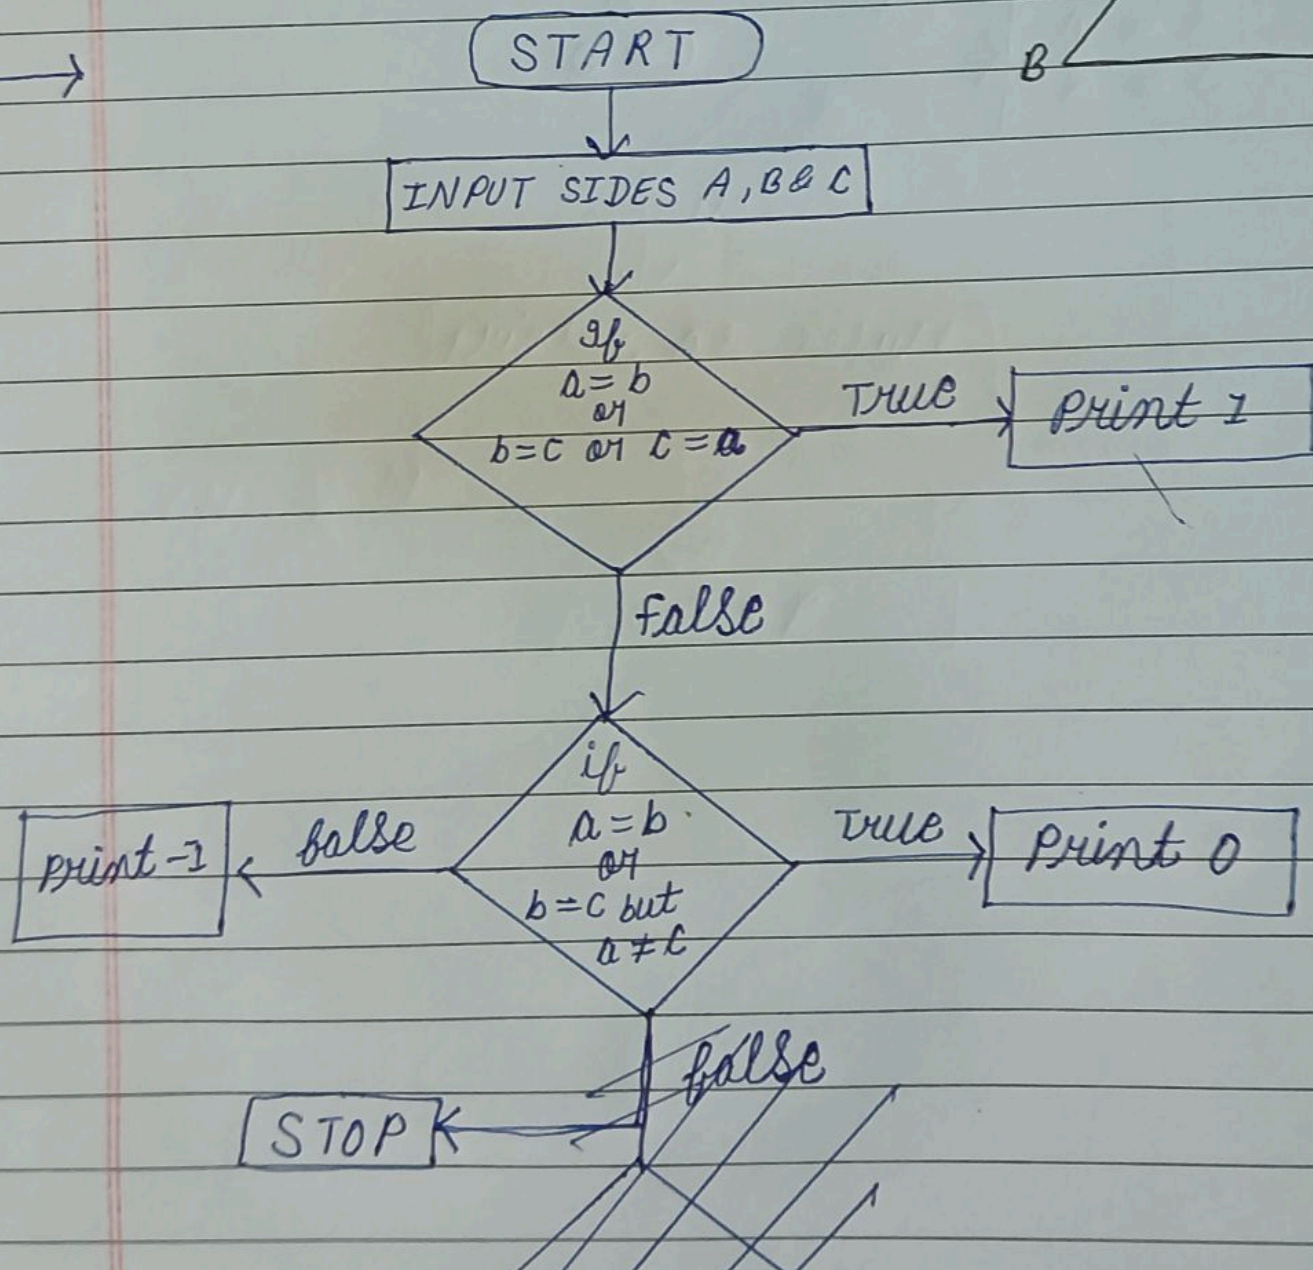 START
B
INPUT SIDES A, B & C
If
a = b
or
b = c or c = a
True
Print 1
false
if
a = b
or
b = c but
a ≠ c
false
Print -1
True
Print 0
false
STOP